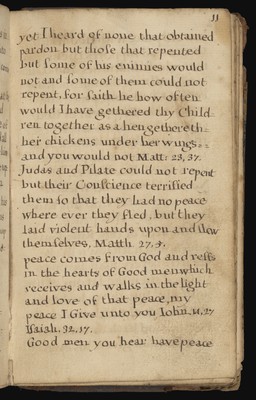 11
yet I heard of none that obtained
pardon but those that repented
but some of his enimies would
not and some of them could not
repent, for saith he how often
would I have gethered thy Child
ren together as a hen gethereth
her chickens under her wings
and you would not Matt: 23, 37.
Judas and Pilate could not repent
but their Conscience terrified
them so that they had no peace
where ever they fled, but they
laid violent hands upon and slew
themselves, Matth 27, 5.
peace comes from God and rests
in the hearts of Good men which
receives and walks in the light
and love of that peace, my
peace I Give unto you John. 14, 27
Isaiah, 32, 17.
Good men you hear have peace